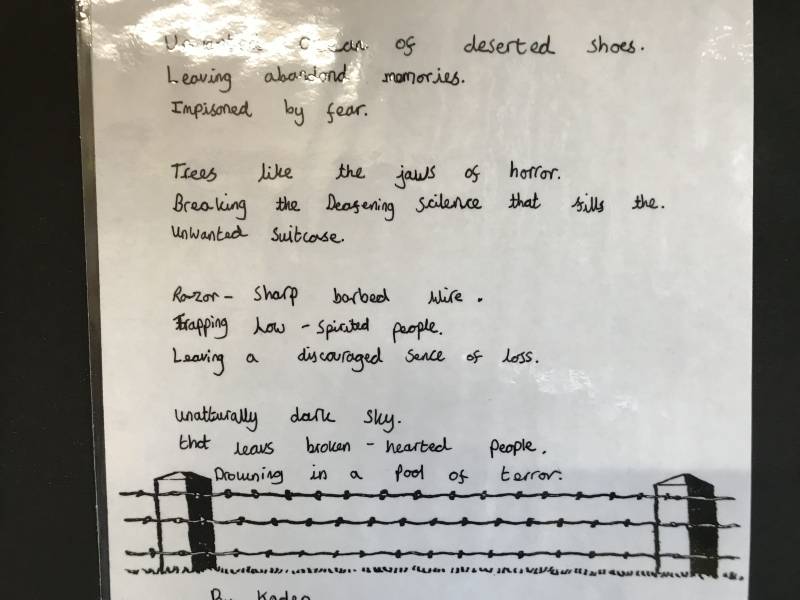 of deserted shoes.
Leaving abandond memories.
Impisoned by fear.
Trees like the jaws of horror.
Breaking the Deafening scilence that fills the.
Unwanted Suitcase.
Razor-Sharp barbed wire.
Trapping Low-spirited people.
Leaving a discouraged sence of loss.
Unatturally dark sky.
that leavs broken-hearted people.
Drowning in a Pool of terror.
By